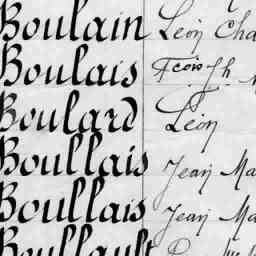 Boulain Léon Cha
Boulais Fcois Jh
Boulard Léon
Boullais Jean Ma
Boullais Jean Ma
Boullault